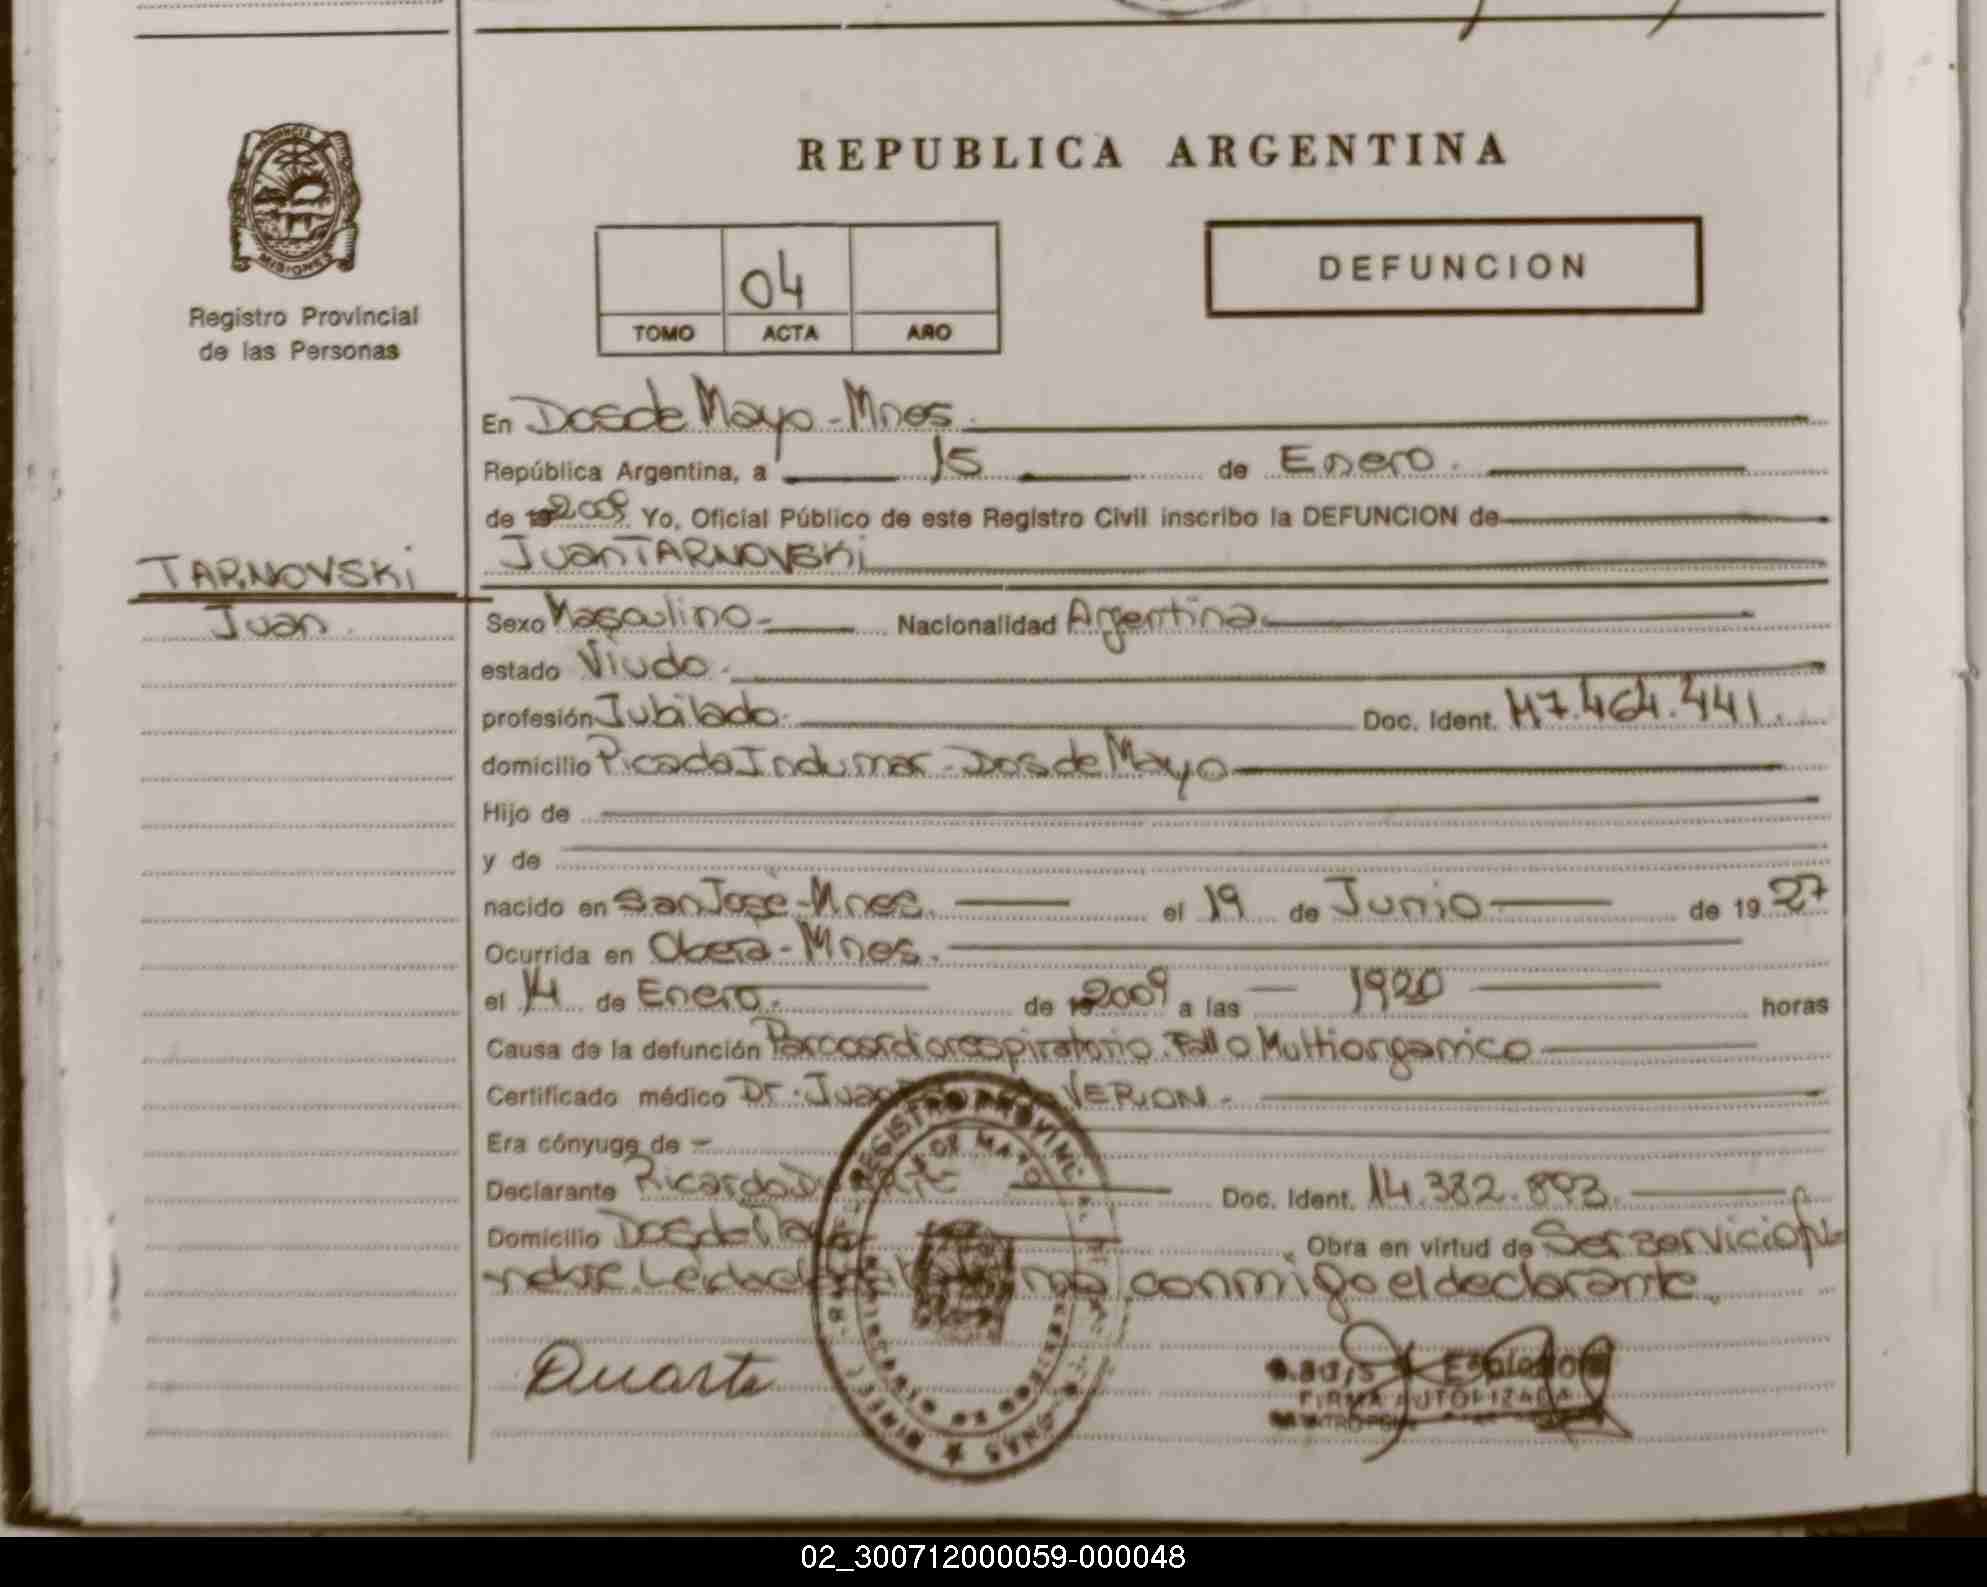 REPUBLICA ARGENTINA
PROVINCIA
MISIONES
Registro Provincial
de las Personas
04
TOMO ACTA AÑO
DEFUNCION
En Dos de Mayo - Mnes.
República Argentina, a 15 de Enero.
de 19 2009 Yo, Oficial Público de este Registro Civil inscribo la DEFUNCION de
TARNOVSKi
Juan.
Juan TARNOVSKi
Sexo Masculino- Nacionalidad Argentina
estado Viudo.
profesión Jubilado. Doc. Ident. M7.464.441.
domicilio Picada Indumar - Dos de Mayo
Hijo de
y de
nacido en San José - Mnes. el 19 de Junio de 19 27
Ocurrida en Oberá - Mnes.
el 14 de Enero. de 19 2009 a las 1920 horas
Causa de la defunción Parocardiorespiratorio. Fallo Multiorganico
Certificado médico Dr. Juan VERON -
Era cónyuge de -
Declarante Ricardo Doc. Ident. 14.382.893.
Domicilio Dos de Mayo Obra en virtud de Ser servicio fú-
-nebre. Leida el acta conmigo el declarante.
REGISTRO PROVINCIAL
DE MAYO
Duarte
FIRMA AUTORIZADA
02_300712000059-000048